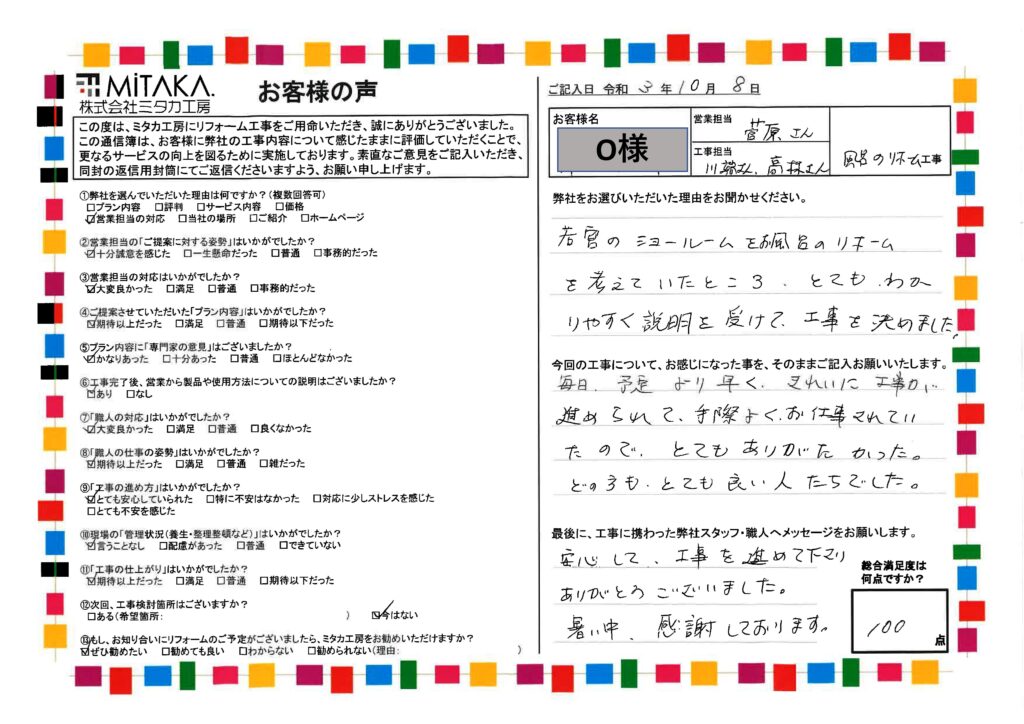 MiTAKA.
株式会社ミタカ工房
お客様の声
この度は、ミタカ工房にリフォーム工事をご用命いただき、誠にありがとうございました。
この通信簿は、お客様に弊社の工事内容について感じたままに評価していただくことで、
更なるサービスの向上を図るために実施しております。素直なご意見をご記入いただき、
同封の返信用封筒にてご返信くださいますよう、お願い申し上げます。
①弊社を選んでいただいた理由は何ですか?(複数回答可)
□プラン内容 □評判 □サービス内容 □価格
☑営業担当の対応 □当社の場所 □ご紹介 □ホームページ
②営業担当の「ご提案に対する姿勢」はいかがでしたか?
☑十分誠意を感じた □一生懸命だった □普通 □事務的だった
③営業担当の対応はいかがでしたか?
☑大変良かった □満足 □普通 □事務的だった
④ご提案させていただいた「プラン内容」はいかがでしたか?
☑期待以上だった □満足 □普通 □期待以下だった
⑤プラン内容に「専門家の意見」はございましたか?
☑かなりあった □十分あった □普通 □ほとんどなかった
⑥工事完了後、営業から製品や使用方法についての説明はございましたか?
☑あり □なし
⑦「職人の対応」はいかがでしたか?
☑大変良かった □満足 □普通 □良くなかった
⑧「職人の仕事の姿勢」はいかがでしたか?
☑期待以上だった □満足 □普通 □雑だった
⑨「工事の進め方」はいかがでしたか?
☑とても安心していられた □特に不安はなかった □対応に少しストレスを感じた
□とても不安を感じた
⑩現場の「管理状況(養生・整理整頓など)」はいかがでしたか?
☑言うことなし □配慮があった □普通 □できていない
⑪「工事の仕上がり」はいかがでしたか?
☑期待以上だった □満足 □普通 □期待以下だった
⑫次回、工事検討箇所はございますか?
□ある(希望箇所: ) ☑今はない
⑬もし、お知り合いにリフォームのご予定がございましたら、ミタカ工房をお勧めいただけますか?
☑ぜひ勧めたい □勧めても良い □わからない □勧められない(理由: )
ご記入日 令和 3 年 10 月 8 日
お客様名
O様
営業担当
菅原さん
工事担当
川崎さん、高林さん
風呂のリホーム工事
弊社をお選びいただいた理由をお聞かせください。
若宮のショールームでお風呂のリホーム
を考えていたところ、とても わか
りやすく説明を受けて、工事を決めました。
今回の工事について、お感じになった事を、そのままご記入お願いいたします。
毎日、予定より早く、きれいに工事が
進められて、手際よくお仕事されてい
たので、とてもありがたかった。
どの方も、とても良い人たちでした。
最後に、工事に携わった弊社スタッフ・職人へメッセージをお願いします。
安心して、工事を進めて下さり
ありがとうございました。
暑い中、感謝しております。
総合満足度は
何点ですか?
100 点